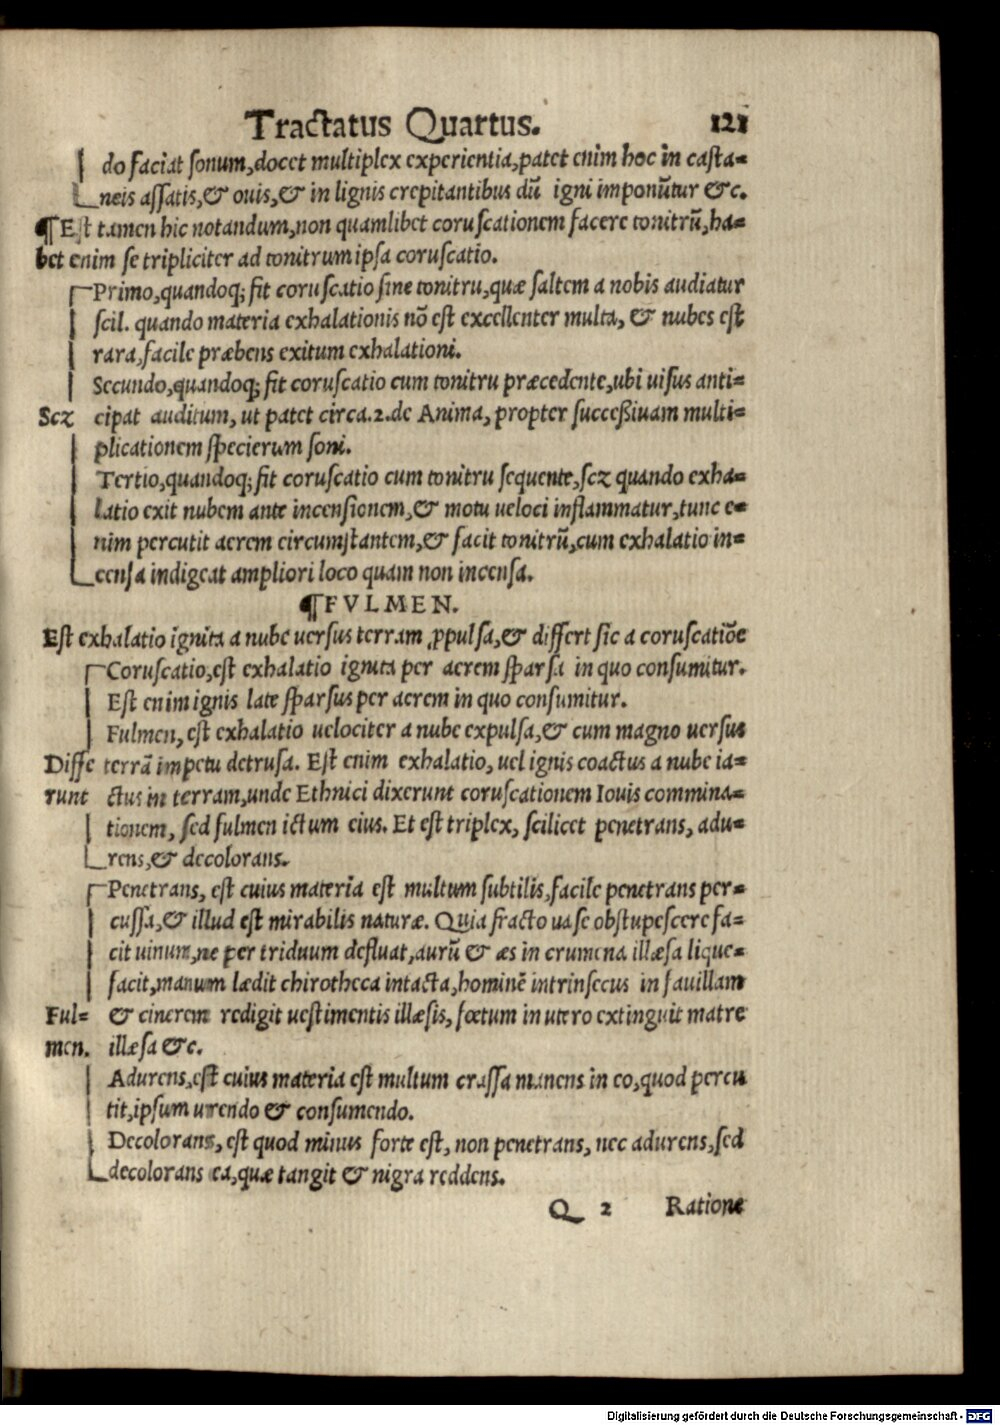 Tractatus Quartus. 121
do faciat sonum,docet multiplex experientia,patet enim hoc in casta=
neis assatis,& ouis,& in lignis crepitantibus dū igni imponūtur &c.
¶Est tamen hic notandum,non quamlibet coruscationem facere tonitrū,ha=
bet enim se tripliciter ad tonitrum ipsa coruscatio.
Primo,quandoq; fit coruscatio sine tonitru,quæ saltem a nobis audiatur
scil. quando materia exhalationis nō est excellenter multa, & nubes est
rara,facile præbens exitum exhalationi.
Secundo,quandoq; fit coruscatio cum tonitru præcedente,ubi uisus anti=
Scz cipat auditum, ut patet circa.2.de Anima, propter successiuam multi=
plicationem specierum soni.
Tertio,quandoq; fit coruscatio cum tonitru sequente,scz quando exha=
latio exit nubem ante incensionem,& motu ueloci inflammatur,tunc e=
nim percutit aerem circumstantem,& facit tonitrū,cum exhalatio in=
censa indigeat ampliori loco quam non incensa.
¶FVLMEN.
Est exhalatio ignita a nube uersus terram ꝓpulsa,& differt sic a coruscatiōe
Coruscatio,est exhalatio ignita per aerem sparsa in quo consumitur.
Est enim ignis late sparsus per aerem in quo consumitur.
Fulmen, est exhalatio uelociter a nube expulsa,& cum magno uersus
Diffe terrā impetu detrusa. Est enim exhalatio, uel ignis coactus a nube ia=
runt ctus in terram,unde Ethnici dixerunt coruscationem Iouis commina=
tionem, sed fulmen ictum eius. Et est triplex, scilicet penetrans, adu=
rens,& decolorans.
Penetrans, est cuius materia est multum subtilis,facile penetrans per=
cussa,& illud est mirabilis naturæ. Quia fracto uase obstupescere fa=
cit uinum,ne per triduum defluat,aurū & æs in crumena illæsa lique=
facit,manum lædit chirotheca intacta,hominē intrinsecus in fauillam
Ful= & cinerem redigit uestimentis illæsis, fœtum in utero extinguit matre
men. illæsa &c.
Adurens,est cuius materia est multum crassa manens in eo,quod percu
tit,ipsum urendo & consumendo.
Decolorans, est quod minus forte est, non penetrans, nec adurens,sed
decolorans ea,quæ tangit & nigra reddens.
Q 2 Ratione
Digitalisierung gefördert durch die Deutsche Forschungsgemeinschaft - DFG